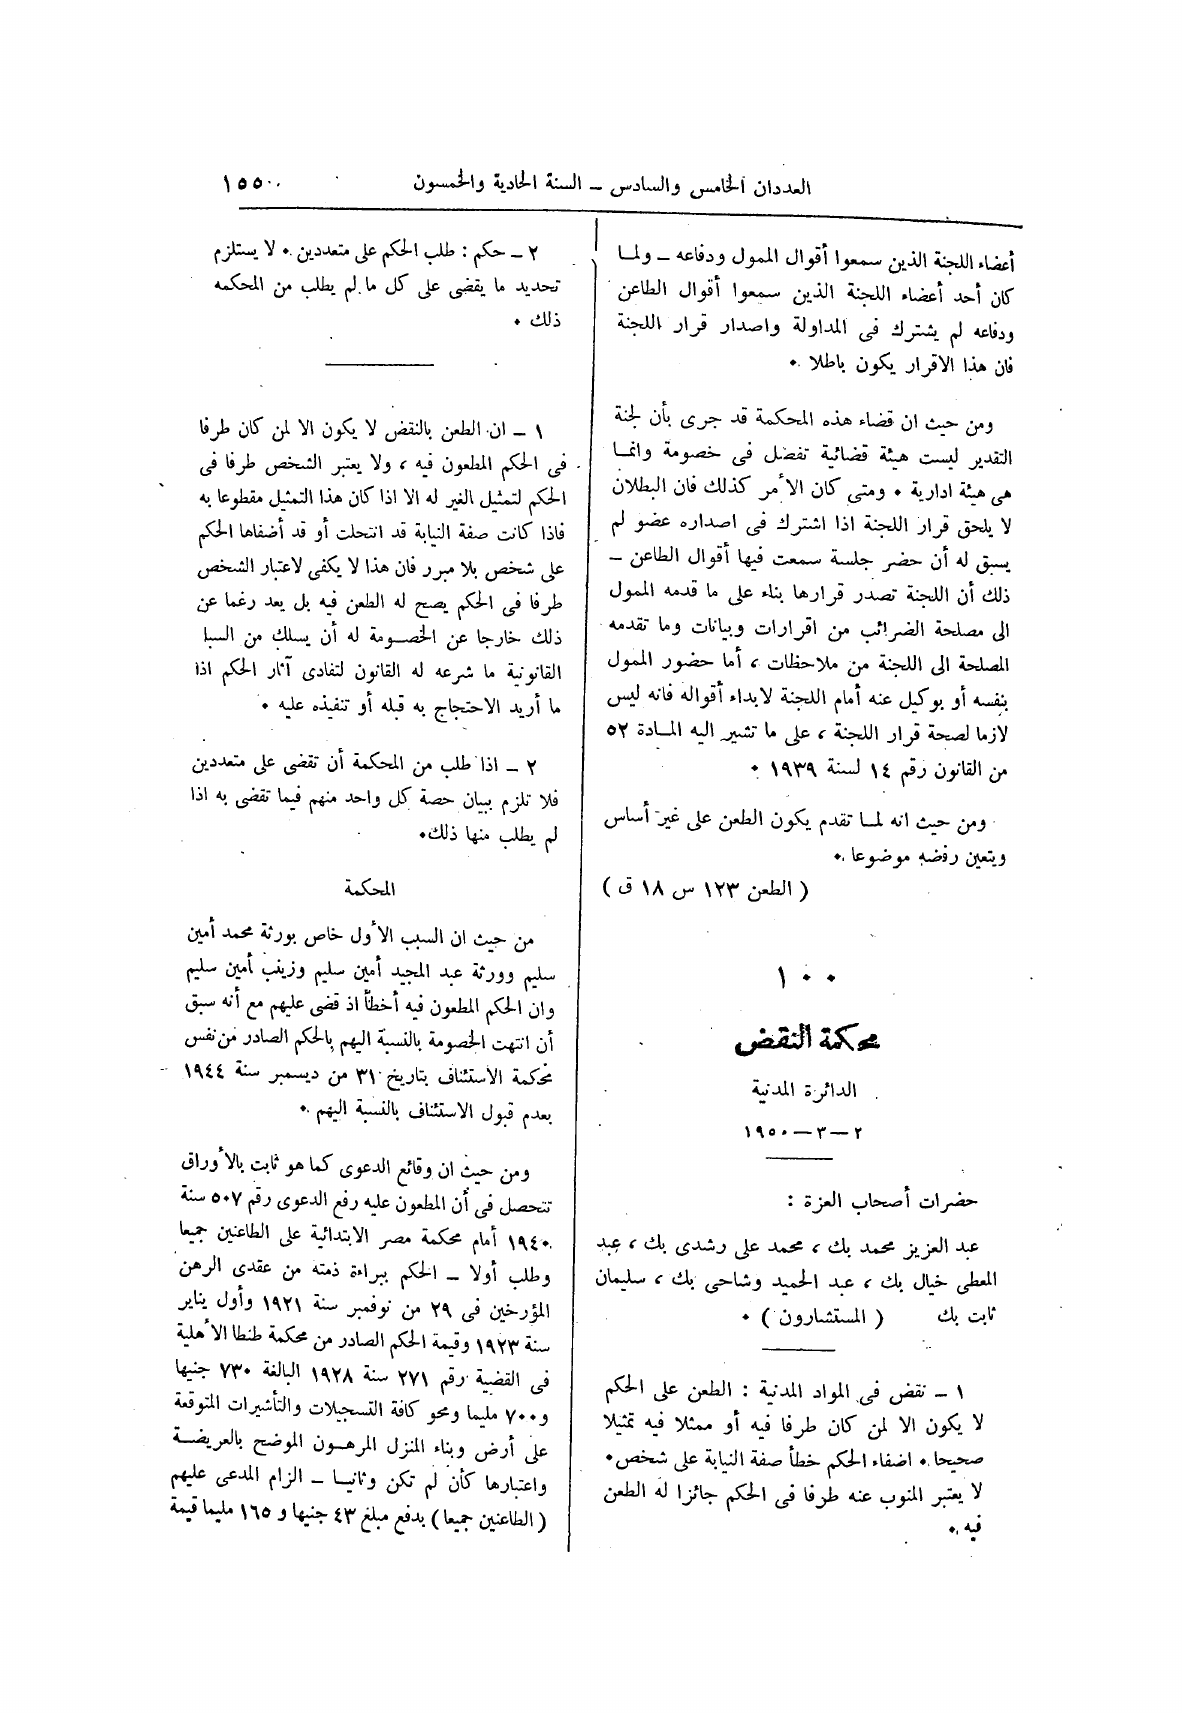 العددان الخامس والسادس – السنة الحادية والخمسون
١٥٥٠
أعضاء اللجنة الذين سمعوا أقوال الممول ودفاعه – ولما
كان أحد أعضاء اللجنة الذين سمعوا أقوال الطاعن
ودفاعه لم يشترك فى المداولة واصدار قرار اللجنة
فان هذا الاقرار يكون باطلا ٠
ومن حيث ان قضاء هذه المحكمة قد جرى بأن لجنة
التقدير ليست هيئة قضائية تفضل فى خصومة وانما
هى هيئة ادارية ٠ ومتى كان الأمر كذلك فان البطلان
لا يلحق قرار اللجنة اذا اشترك فى اصداره عضو لم
يسبق له أن حضر جلسة سمعت فيها أقوال الطاعن –
ذلك أن اللجنة تصدر قرارها بناء على ما قدمه الممول
الى مصلحة الضرائب من اقرارات وبيانات وما تقدمه
المصلحة الى اللجنة من ملاحظات ، أما حضور الممول
بنفسه أو بوكيل عنه أمام اللجنة لابداء أقواله فانه ليس
لازما لصحة قرار اللجنة ، على ما تشير اليه المادة ٥٢
من القانون رقم ١٤ لسنة ١٩٣٩ ٠
ومن حيث انه لما تقدم يكون الطعن على غير أساس
ويتعين رفضه موضوعا ٠
( الطعن ١٢٣ س ١٨ ق )
١٠٠
محكمة النقض
الدائرة المدنية
٢ – ٣ – ١٩٥٠
حضرات أصحاب العزة :
عبد العزيز محمد بك ، محمد على رشدى بك ، عبد
المعطى خيال بك ، عبد الحميد وشاحى بك ، سليمان
ثابت بك ( المستشارون ) ٠
١ – نقض فى المواد المدنية : الطعن على الحكم
لا يكون الا لمن كان طرفا فيه أو ممثلا فيه تمثيلا
صحيحا ٠ اضفاء الحكم خطأ صفة النيابة على شخص ٠
لا يعتبر المنوب عنه طرفا فى الحكم جائزا له الطعن
فيه ٠
٢ – حكم : طلب الحكم على متعددين ٠ لا يستلزم
تحديد ما يقضى على كل ما لم يطلب من المحكمه
ذلك ٠
١ – ان الطعن بالنقض لا يكون الا لمن كان طرفا
فى الحكم المطعون فيه ، ولا يعتبر الشخص طرفا فى
الحكم لتمثيل الغير له الا اذا كان هذا التمثيل مقطوعا به
فاذا كانت صفة النيابة قد انتحلت أو قد أضفاها الحكم
على شخص بلا مبرر فان هذا لا يكفى لاعتبار الشخص
طرفا فى الحكم يصح له الطعن فيه بل يعد رغما عن
ذلك خارجا عن الخصومة له أن يسلك من السبا
القانونية ما شرعه له القانون لتفادى آثار الحكم اذا
ما أريد الاحتجاج به قبله أو تنفيذه عليه ٠
٢ – اذا طلب من المحكمة أن تقضى على متعددين
فلا تلزم ببيان حصة كل واحد منهم فيما تقضى به اذا
لم يطلب منها ذلك ٠
المحكمة
من حيث ان السبب الأول خاص بورثة محمد أمين
سليم وورثة عبد المجيد أمين سليم وزينب أمين سليم
وان الحكم المطعون فيه أخطأ اذ قضى عليهم مع أنه سبق
أن انتهت الخصومة بالنسبة اليهم بالحكم الصادر من نفس
محكمة الاستئناف بتاريخ ٣١ من ديسمبر سنة ١٩٤٤
بعدم قبول الاستئناف بالنسبة اليهم ٠
ومن حيث ان وقائع الدعوى كما هو ثابت بالأوراق
تتحصل فى أن المطعون عليه رفع الدعوى رقم ٥٠٧ سنة
١٩٤٠ أمام محكمة مصر الابتدائية على الطاعنين جميعا
وطلب أولا – الحكم ببراءة ذمته من عقدى الرهن
المؤرخين فى ٢٩ من نوفمبر سنة ١٩٢١ وأول يناير
سنة ١٩٢٣ وقيمة الحكم الصادر من محكمة طنطا الأهلية
فى القضية رقم ٢٧١ سنة ١٩٢٨ البالغة ٧٣٠ جنيها
و٧٠٠ مليما ومحو كافة التسجيلات والتأشيرات المتوقعة
على أرض وبناء المنزل المرهون الموضح بالعريضة
واعتبارها كأن لم تكن وثانيا – الزام المدعى عليهم
( الطاعنين جميعا ) بدفع مبلغ ٤٣ جنيها و ١٦٥ مليما قيمة